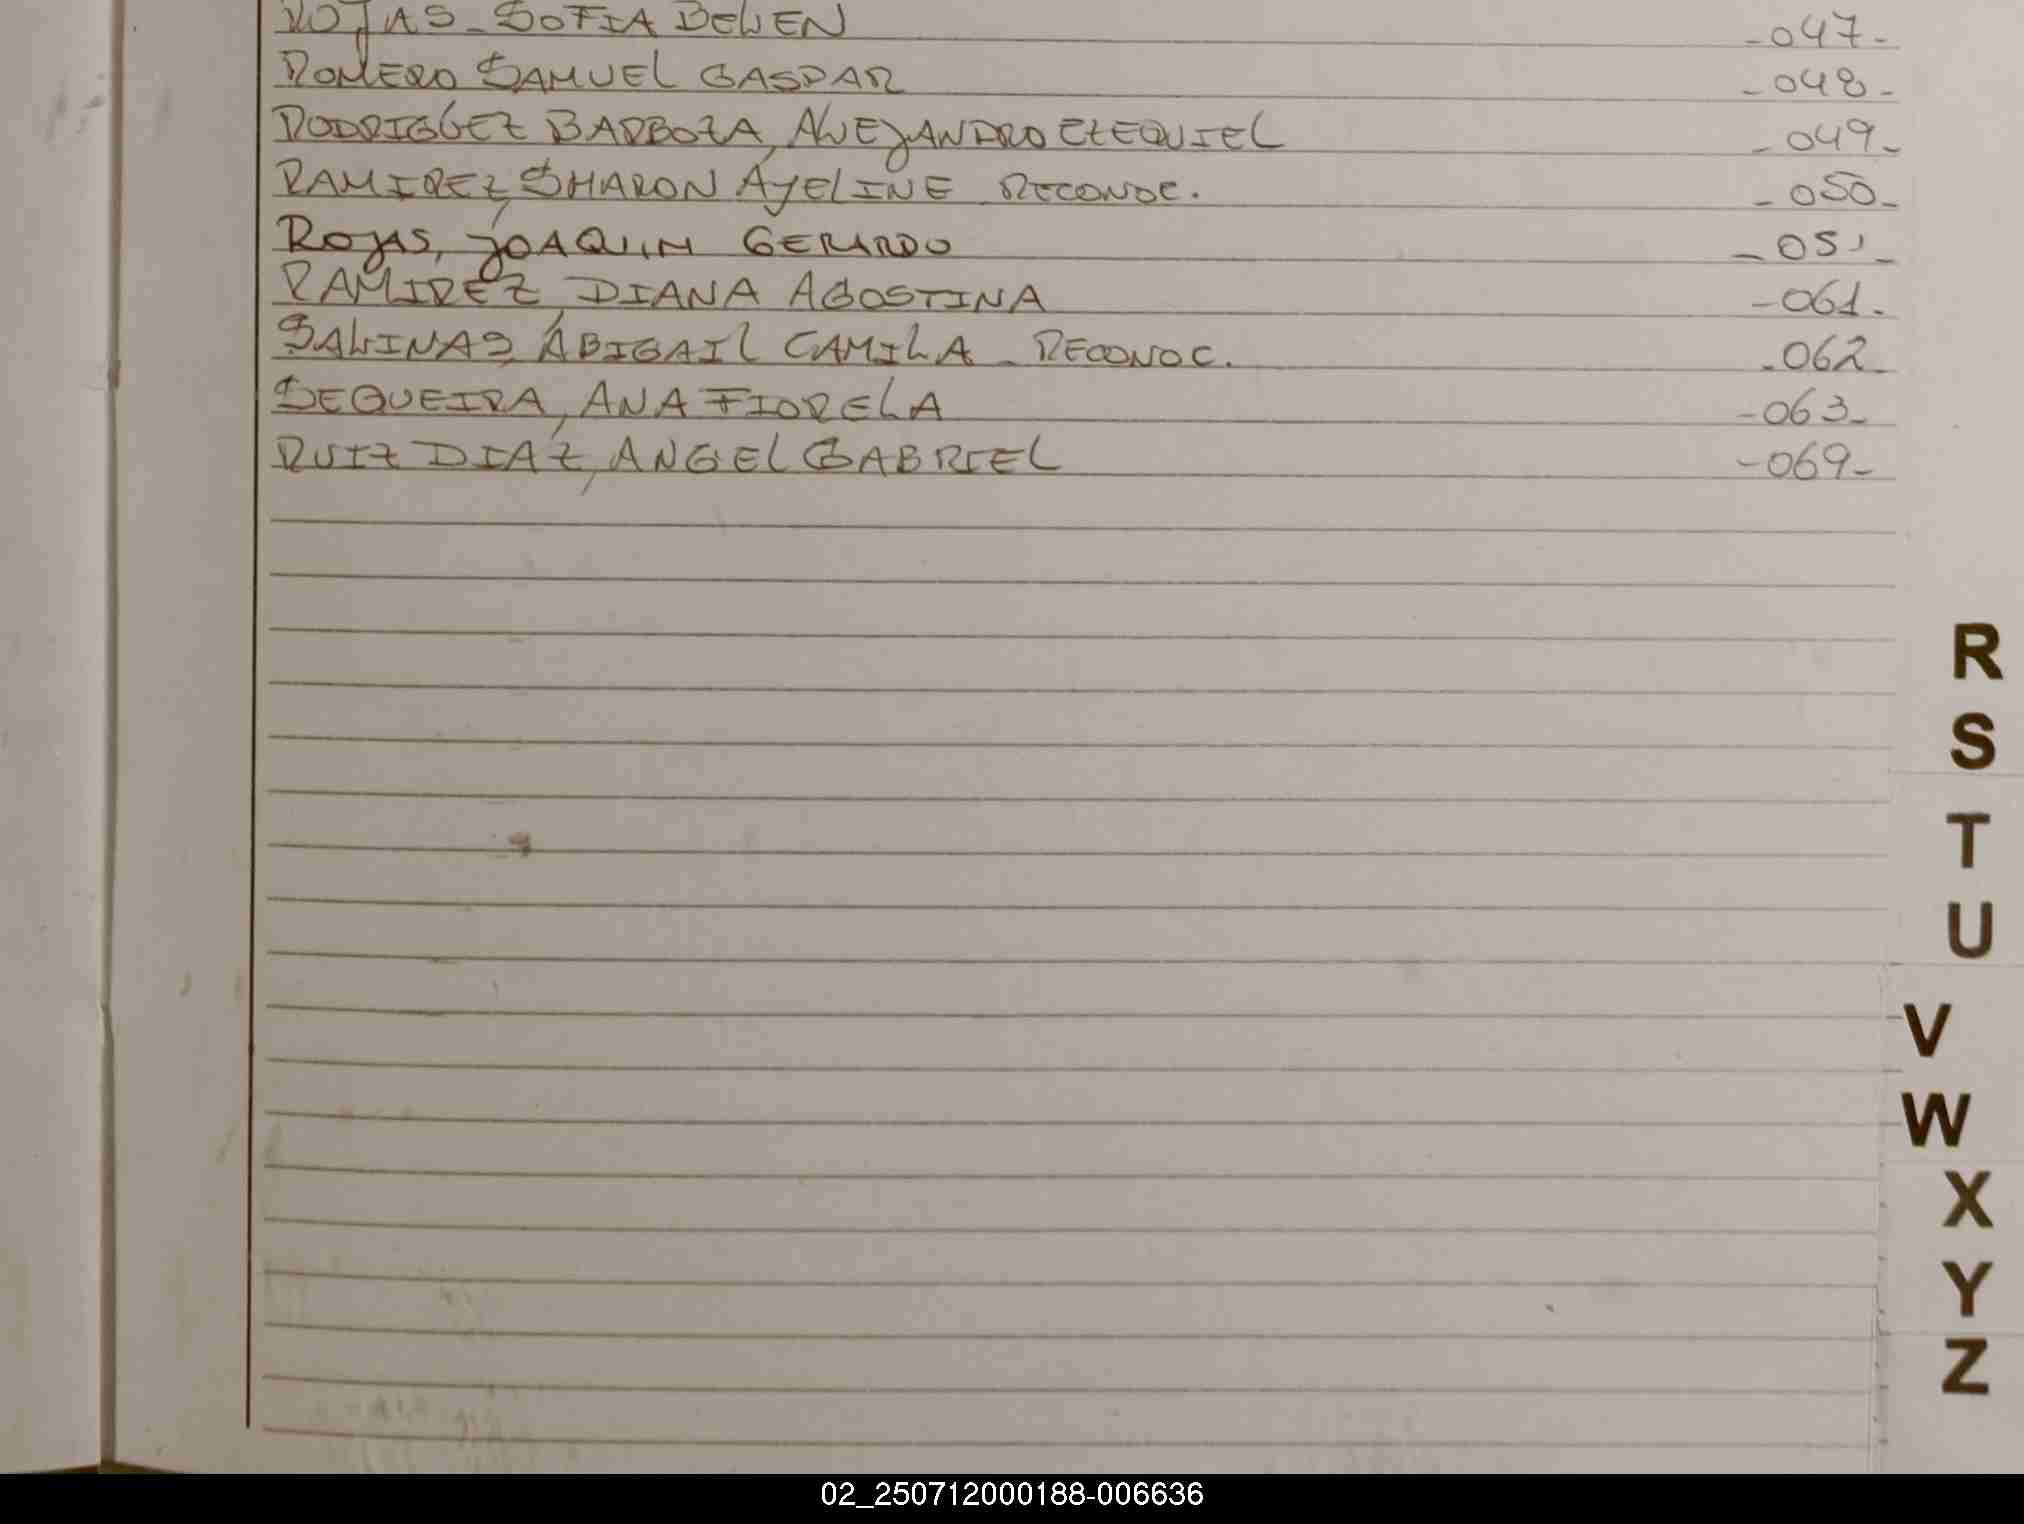 ROJAS - SOFIA BELEN -047-
ROMERO SAMUEL GASPAR -048-
RODRIGUEZ BARBOZA, ALEJANDRO EZEQUIEL -049-
RAMIREZ, SHARON AYELINE RECONOC. -050-
ROJAS, JOAQUIN GERARDO -051-
RAMIREZ DIANA AGOSTINA -061-
SALINAS, ABIGAIL CAMILA - RECONOC. -062-
SEQUEIRA, ANA FIORELA -063-
RUIZ DIAZ, ANGEL GABRIEL -069-
R
S
T
U
V
W
X
Y
Z
02_250712000188-006636